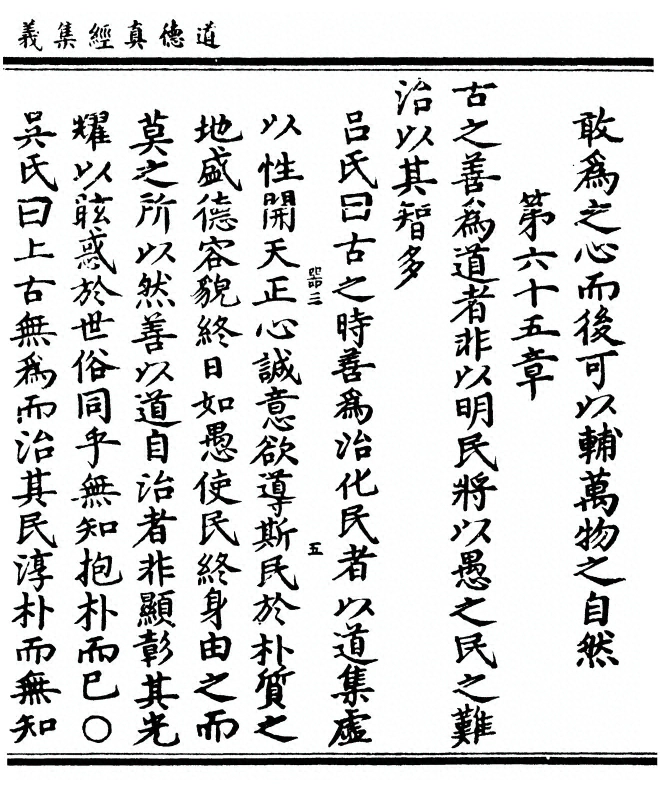 道德真經集義
敢爲之心而後可以輔萬物之自然
第六十五章
古之善爲道者非以明民將以愚之民之難
治以其智多
呂氏曰古之時善爲治化民者以道集虛
以性開天正心誠意欲導斯民於朴質之
三
五
地盛德容貌終日如愚使民終身由之而
莫之所以然善以道自治者非顯彰其光
耀以眩惑於世俗同乎無知抱朴而已○
吳氏曰上古無爲而治其民淳朴而無知